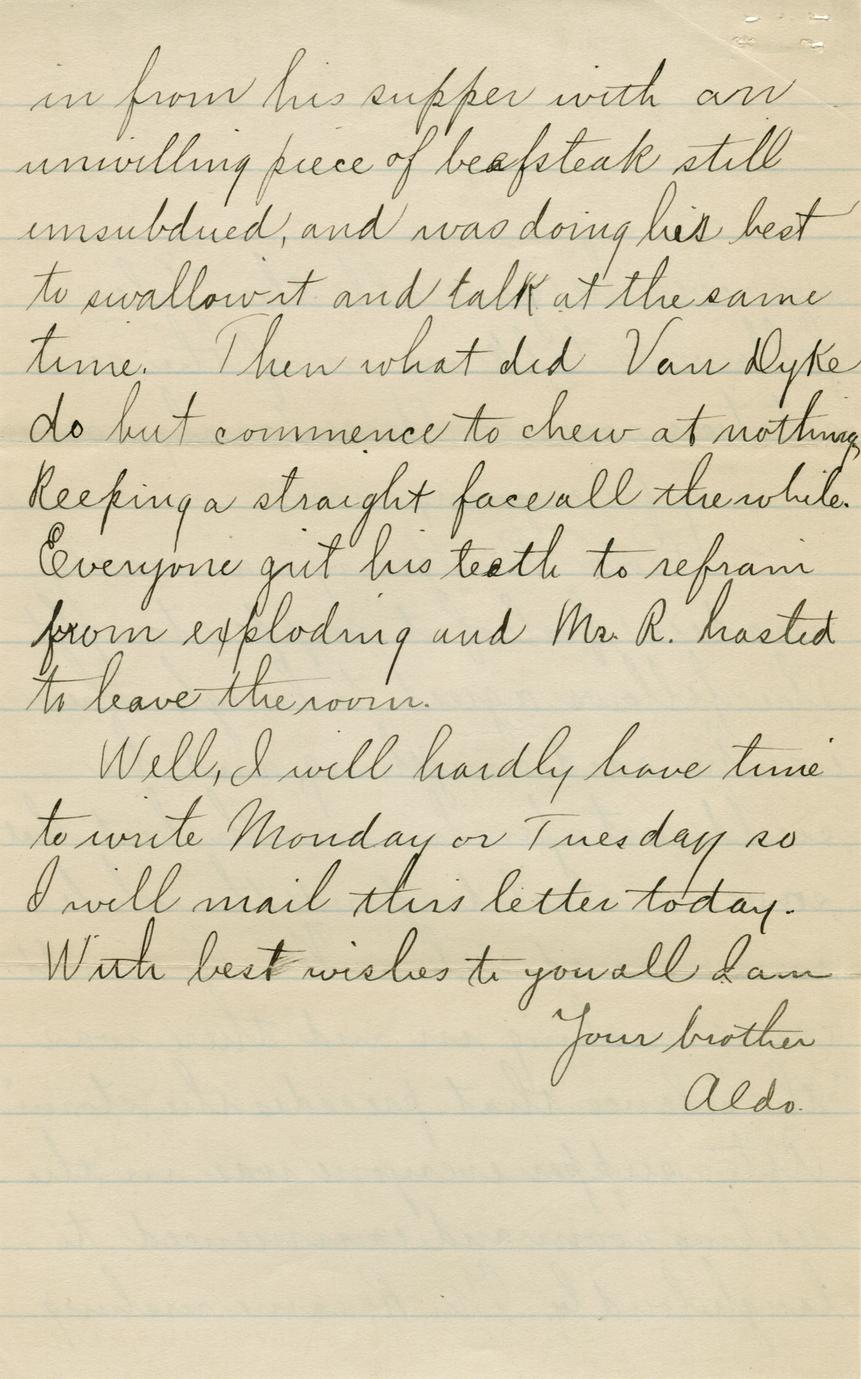 in from his supper with an
unwilling piece of beefsteak still
unsubdued, and was doing his best
to swallow it and talk at the same
time. Then what did Van Dyke
do but commence to chew at nothing,
keeping a straight face all the while.
Everyone grit his teeth to refrain
from exploding and Mr. R. hasted
to leave the room.
Well, I will hardly have time
to write Monday or Tuesday so
I will mail this letter today.
With best wishes to you all I am
Your brother
Aldo.